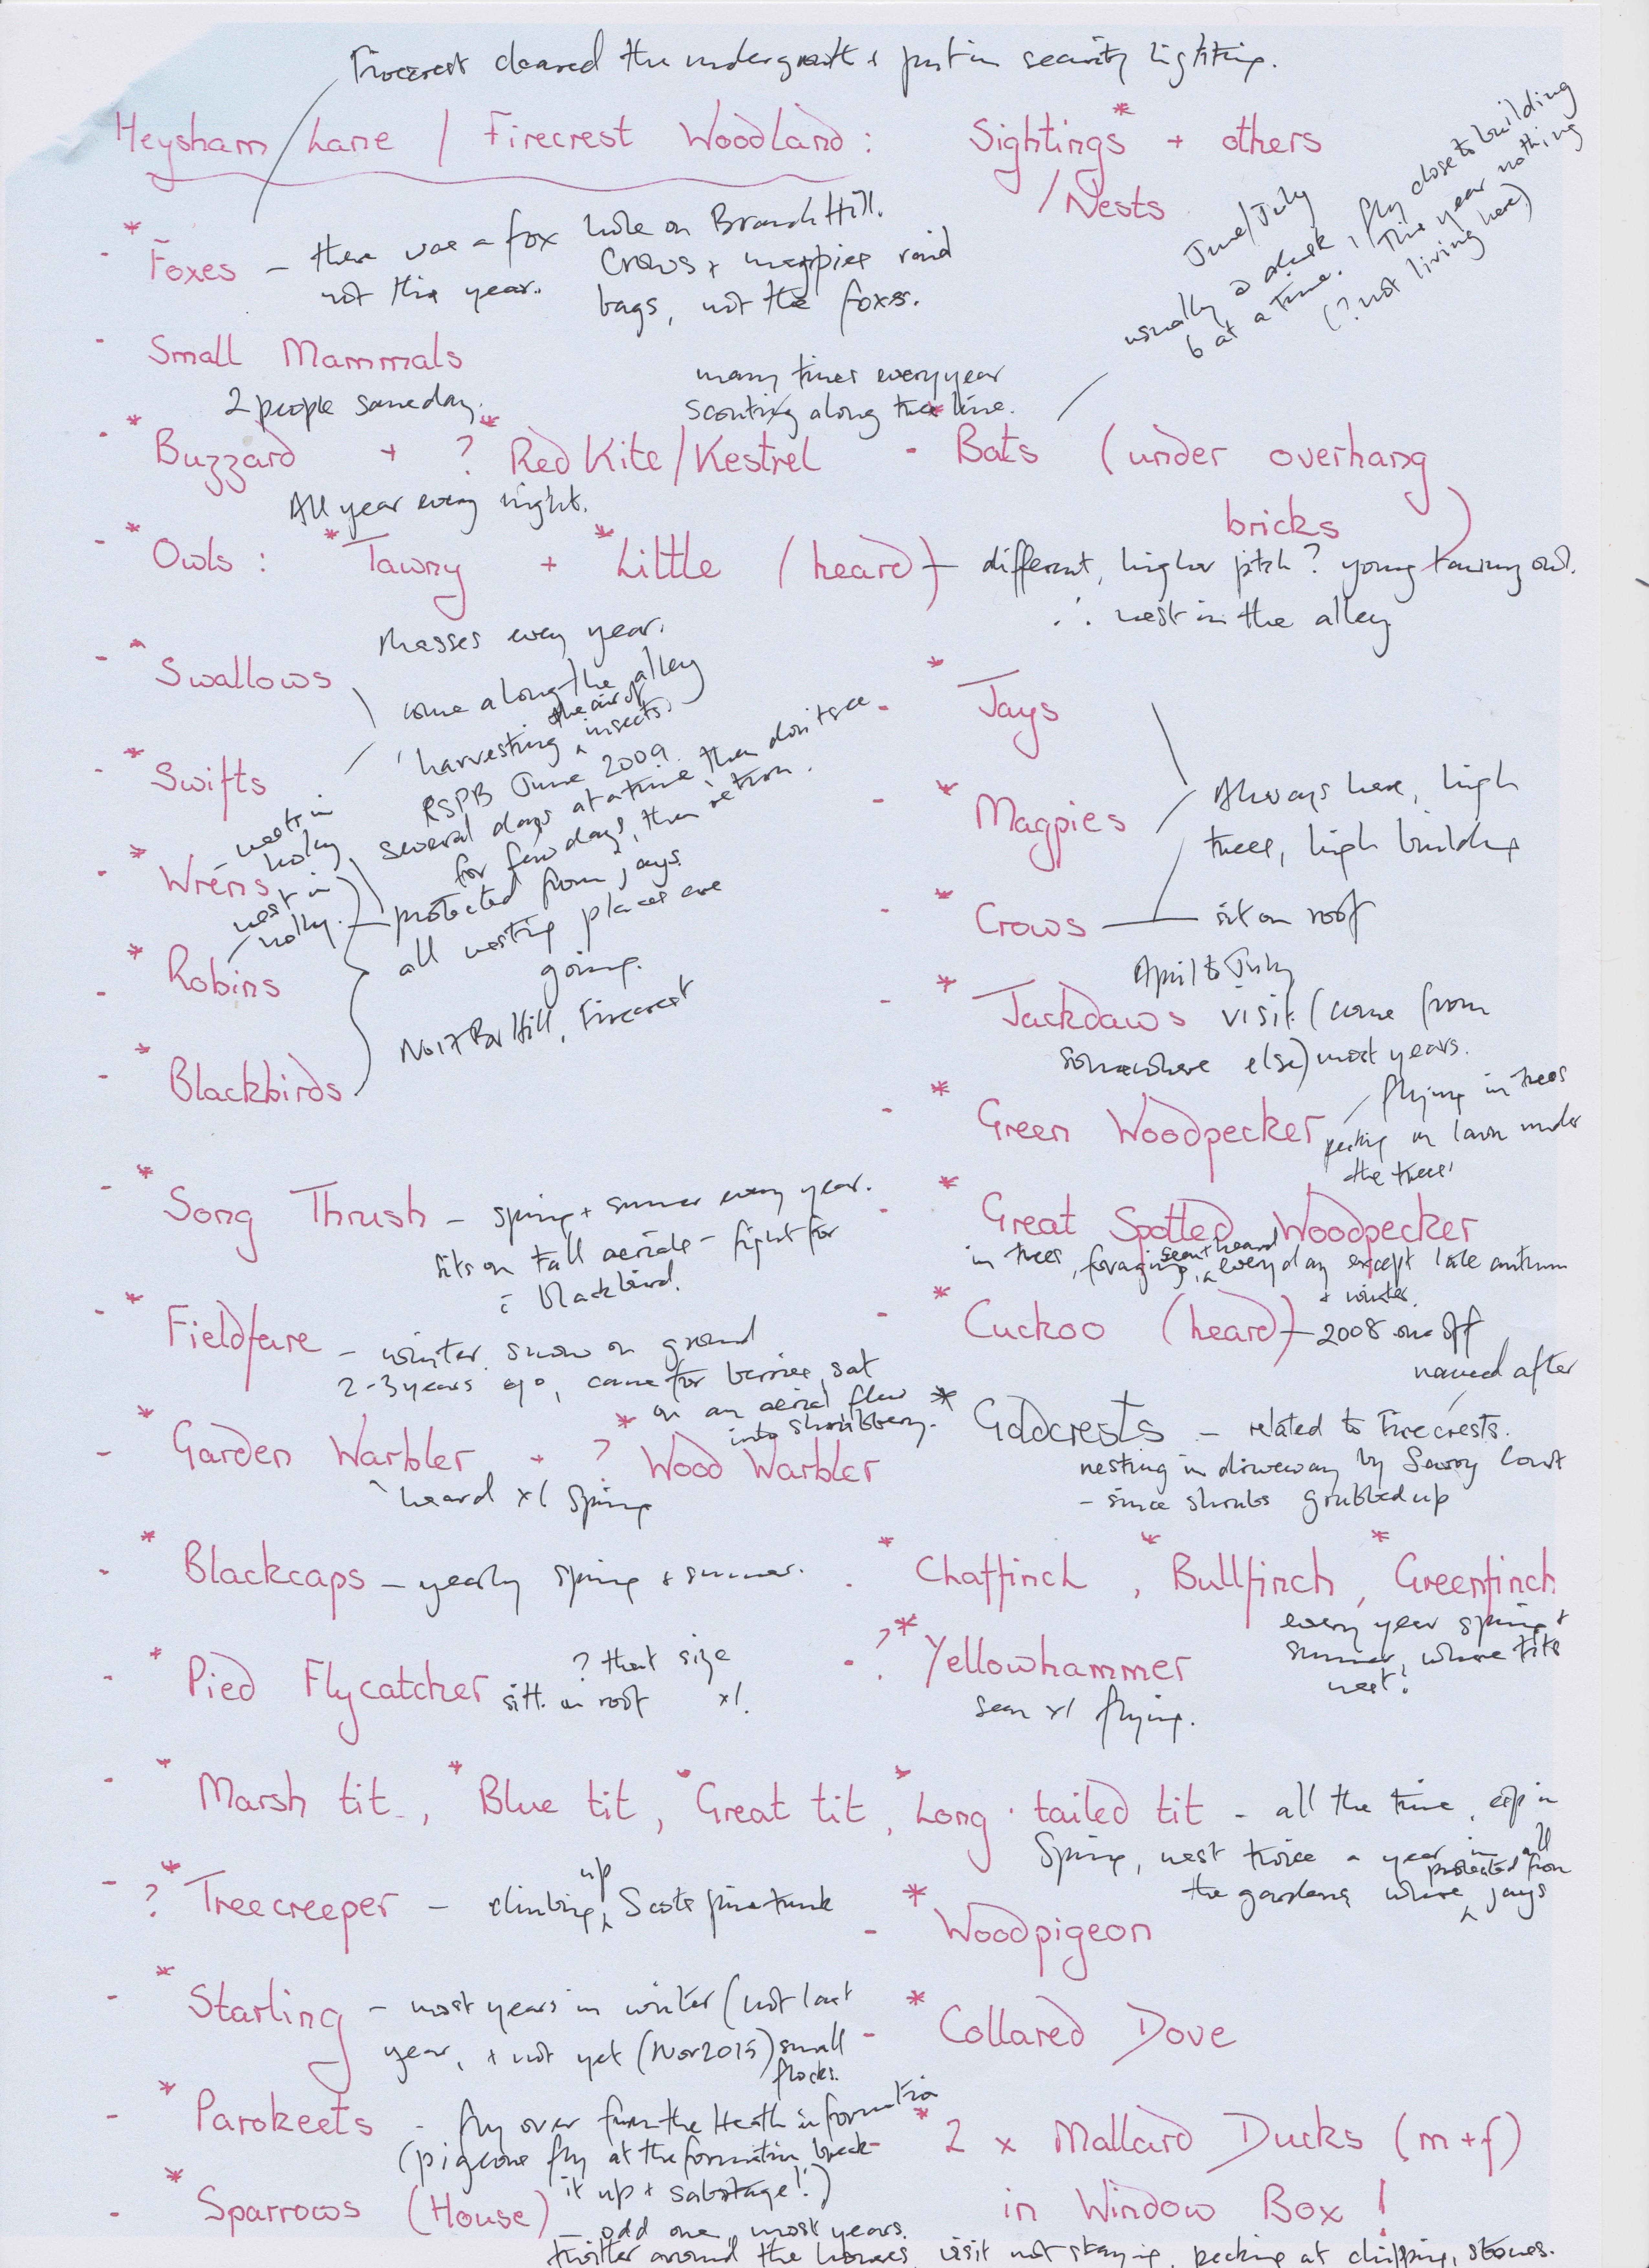 Firecrest cleared the undergrowth + put in security lighting.
Heysham Lane / Firecrest Woodland : Sightings* + others
/ Nests
June/July
usually @ dusk, fly close to building
6 at a time. This year nothing
(? not living here)
- * Foxes - there was a fox hole on Branch Hill.
not this year. Crows + magpies raid
bags, not the foxes.
- Small Mammals
2 people same day.
many times every year
scouting along tree line.
- * Buzzard + ? * Red Kite / Kestrel
- * Bats (under overhang
bricks)
All year every night.
- * Owls : * Tawny + * Little (heard) - different, higher pitch ? young tawny owl.
∴ nest in the alley
Masses every year.
- * Swallows
come along the alley
'harvesting the air of insects'
RSPB June 2009
several days at a time then don't see
for few days, then return.
- * Swifts
- nests in
holly
- * Wrens
nest in
holly. - protected from jays
all nesting places are
going.
- * Robins
No 17 Br Hill, Firecrest
- * Blackbirds
- * Jays
- * Magpies
Always here, high
trees, high building
- * Crows - sit on roof
April to July
- * Jackdaws visit (come from
somewhere else) most years.
- * Green Woodpecker - flying in trees
pecking on lawn under
the trees
- * Song Thrush - spring + summer every year.
sits on tall aerials - fight for
c̄ blackbird.
- * Great Spotted Woodpecker
in trees, foraging, seen + heard every day except late autumn
+ winter.
- * Fieldfare - winter snow on ground
2-3 years ago, came for berries, sat
on an aerial flew
into shrubbery.
- * Cuckoo (heard) - 2008 one off
named after
* Goldcrests - related to Firecrests.
nesting in driveway by Savoy Court
- since shrubs grubbed up
- * Garden Warbler + ? * Wood Warbler
heard x1 Spring
- * Blackcaps - yearly spring + summer.
- * Chaffinch , * Bullfinch , * Greenfinch
every year spring +
summer, where tits
nest!
- * Pied Flycatcher ? that size
sitt. on roof x1.
- ? * Yellowhammer
seen x1 flying.
- * Marsh tit , * Blue tit , * Great tit , * Long-tailed tit - all the time, esp in
Spring, nest twice a year in all
the gardens where protected from jays
- ? * Treecreeper - climbing up Scots pine trunk
- * Woodpigeon
- * Starling - most years in winter (not last
year, + not yet (Nov 2015) small
flocks.
- * Collared Dove
- * Parakeets - fly over from the Heath in formation
(pigeons fly at the formation break
it up + sabotage!)
* 2 x Mallard Ducks (m+f)
in Window Box !
- * Sparrows (House) - odd one, most years.
twitter around the houses, visit not staying, pecking at chipping, stones.